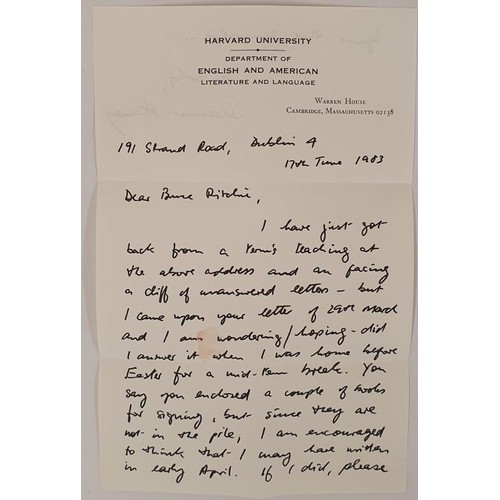 HARVARD UNIVERSITY
DEPARTMENT OF
ENGLISH AND AMERICAN
LITERATURE AND LANGUAGE
WARREN HOUSE
CAMBRIDGE, MASSACHUSETTS 02138
191 Strand Road, Dublin 4
17th June 1983
Dear Bruce Ritchie,
I have just got
back from a term's teaching at
the above address and am facing
a cliff of unanswered letters - but
I came upon your letter of 29th March
and I am wondering/hoping - did
I answer it when I was home before
Easter for a mid-term break. You
say you enclosed a couple of books
for signing, but since they are
not in the pile, I am encouraged
to think that I may have written
in early April. If I did, please